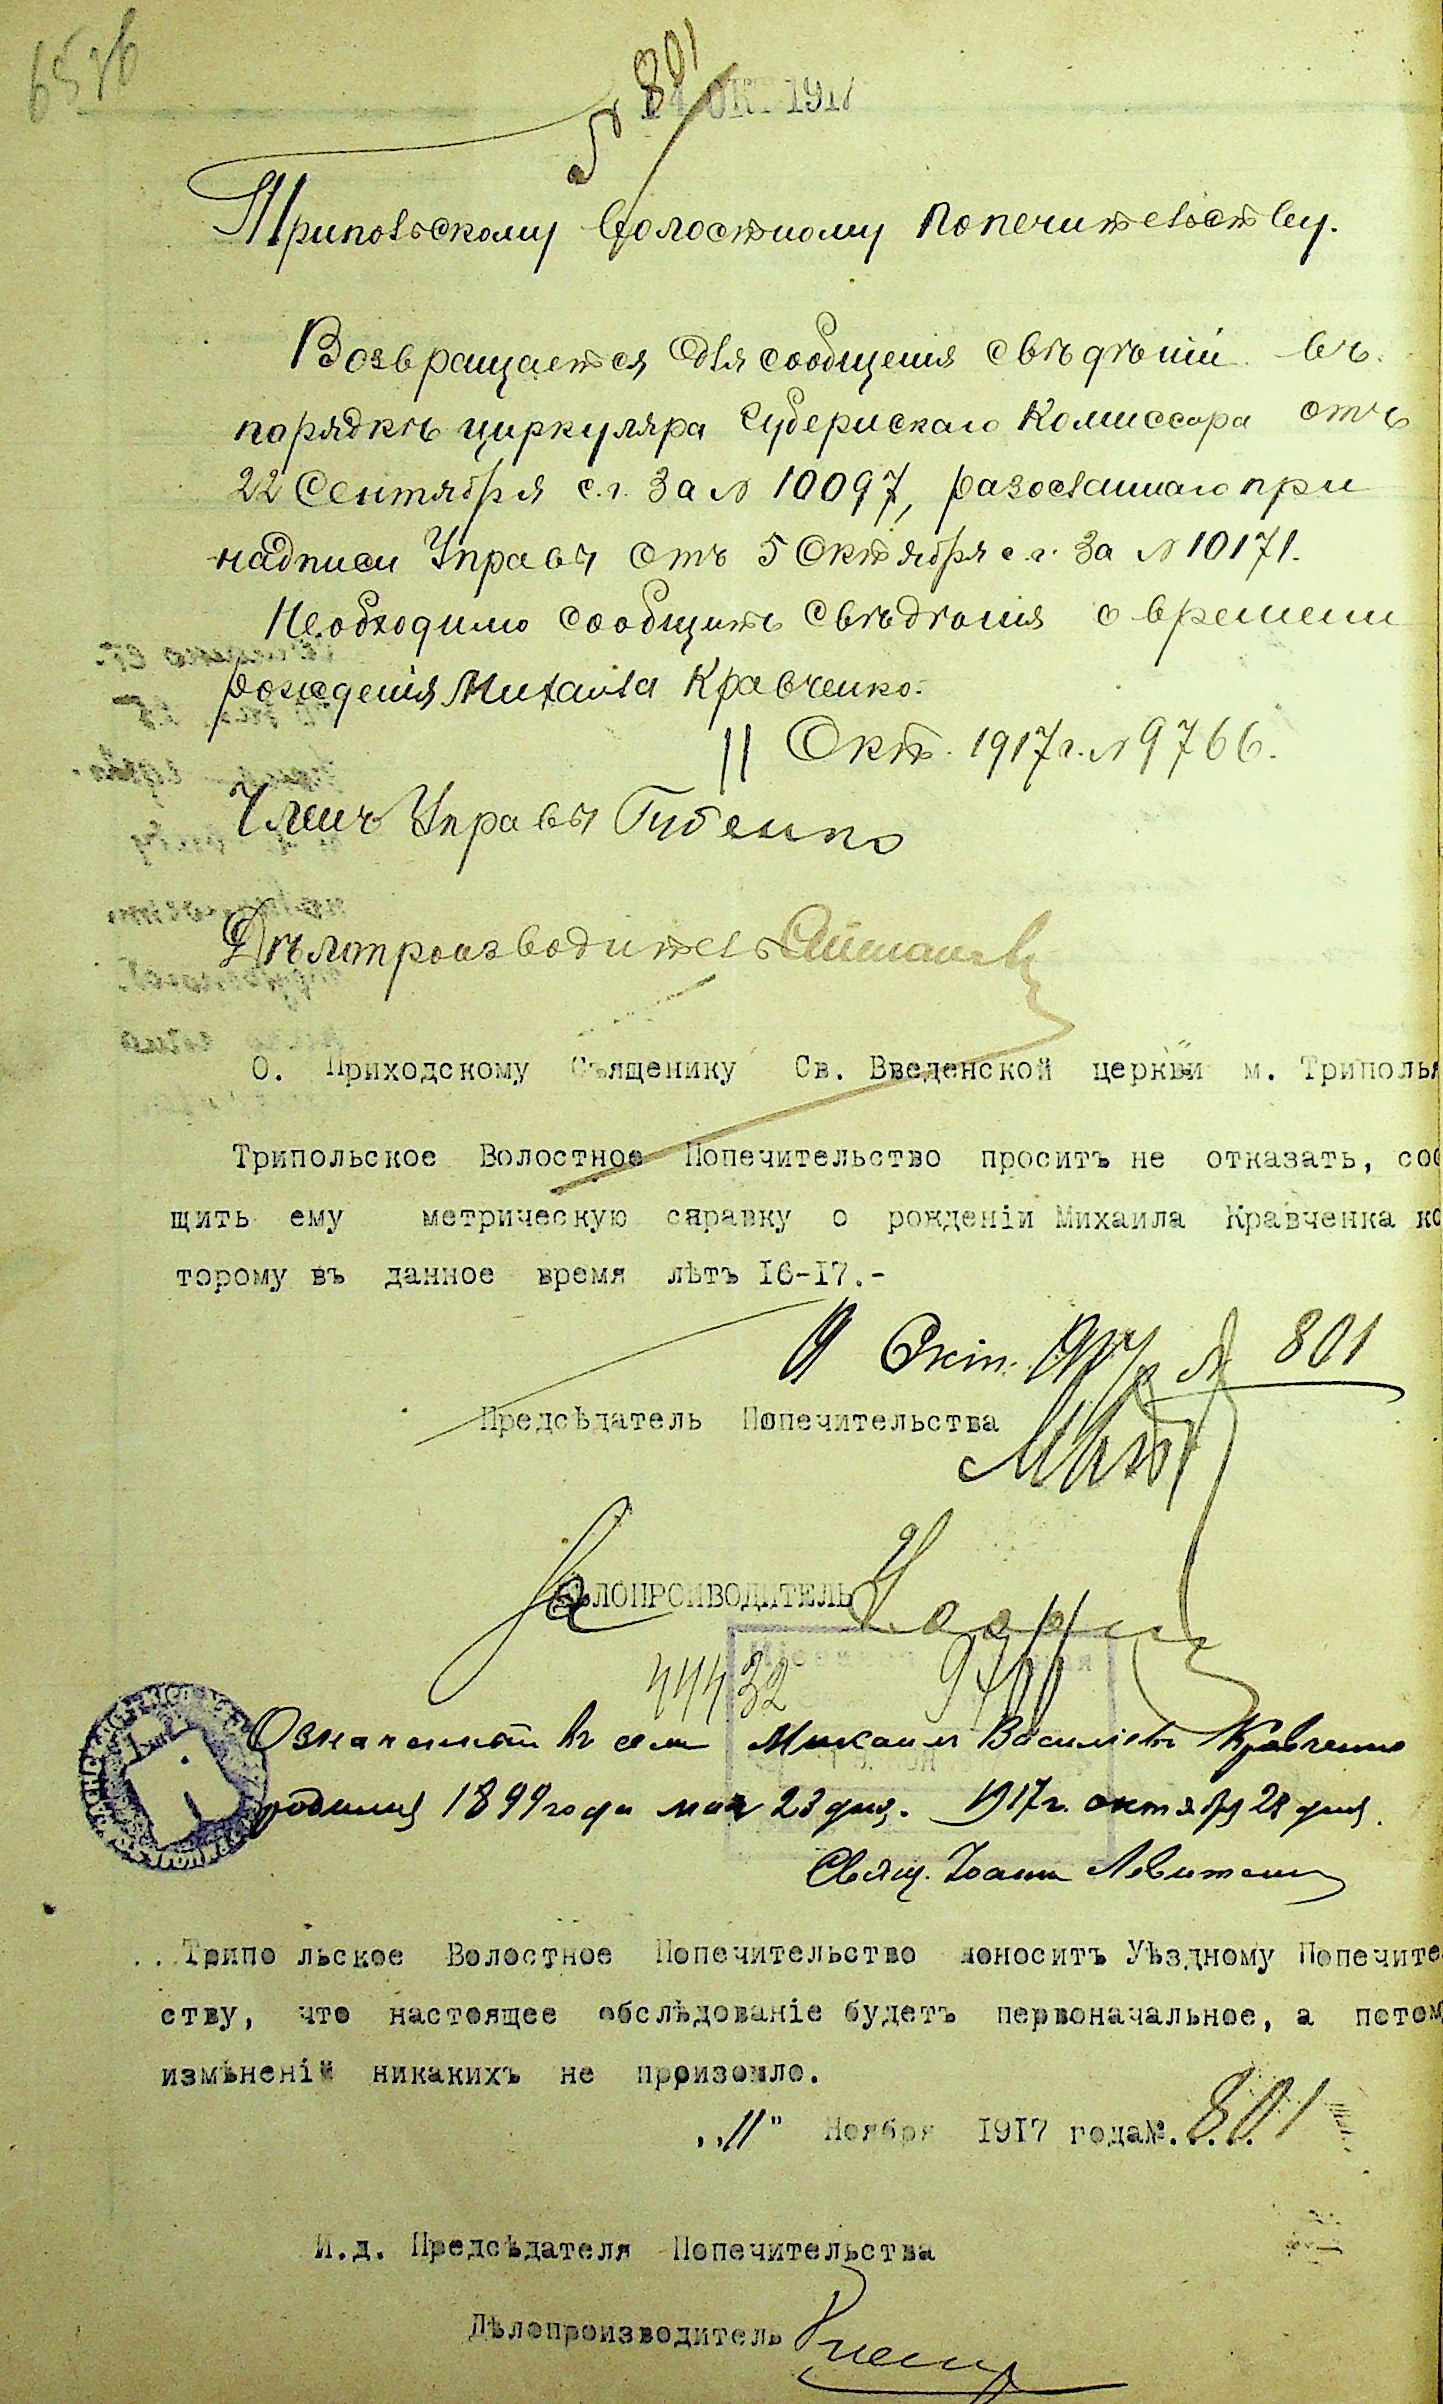 6576
№ 801
14 ОКТ. 1917
Трипольскому Волостному Попечительству.
Возвращается для сообщенія свѣдѣній въ
порядкѣ циркуляра Губернскаго Комиссара отъ
22 Сентября с.г. за № 10097, разосланнаго при
надписи Управы отъ 5 Октября с.г. за № 10171.
Необходимо сообщить свѣдѣнія о времени
рожденія Михаила Кравченко.
11 Окт. 1917 г. № 9766.
Членъ Управы
Дѣлопроизводитель
О. Приходскому Священику Св. Введенской церкви м. Триполья
Трипольское Волостное Попечительство проситъ не отказать, соо
щить ему метрическую справку о рожденіи Михаила Кравченка ко
торому въ данное время лѣтъ 16-17.-
19 Окт. 1917 г. № 801
Предсѣдатель Попечительства
За
ДѢЛОПРОИВОДИТЕЛЬ
44432 9766
Означенный въ сем Михаилъ Василіевъ Кравченко
родился 1899 года мая 23 дня. 1917 г. октября 28 дня.
Свящ. Іоаннъ Левитскій
Трипо льское Волостное Попечительство доноситъ Уѣздному Попечите
ству, что настоящее обслѣдованіе будетъ первоначальное, а потом
измѣненій никакихъ не прризошло.
„11" Ноября 1917 года №. 801
И.д. Предсѣдателя Попечительства
Дѣлопроизводитель